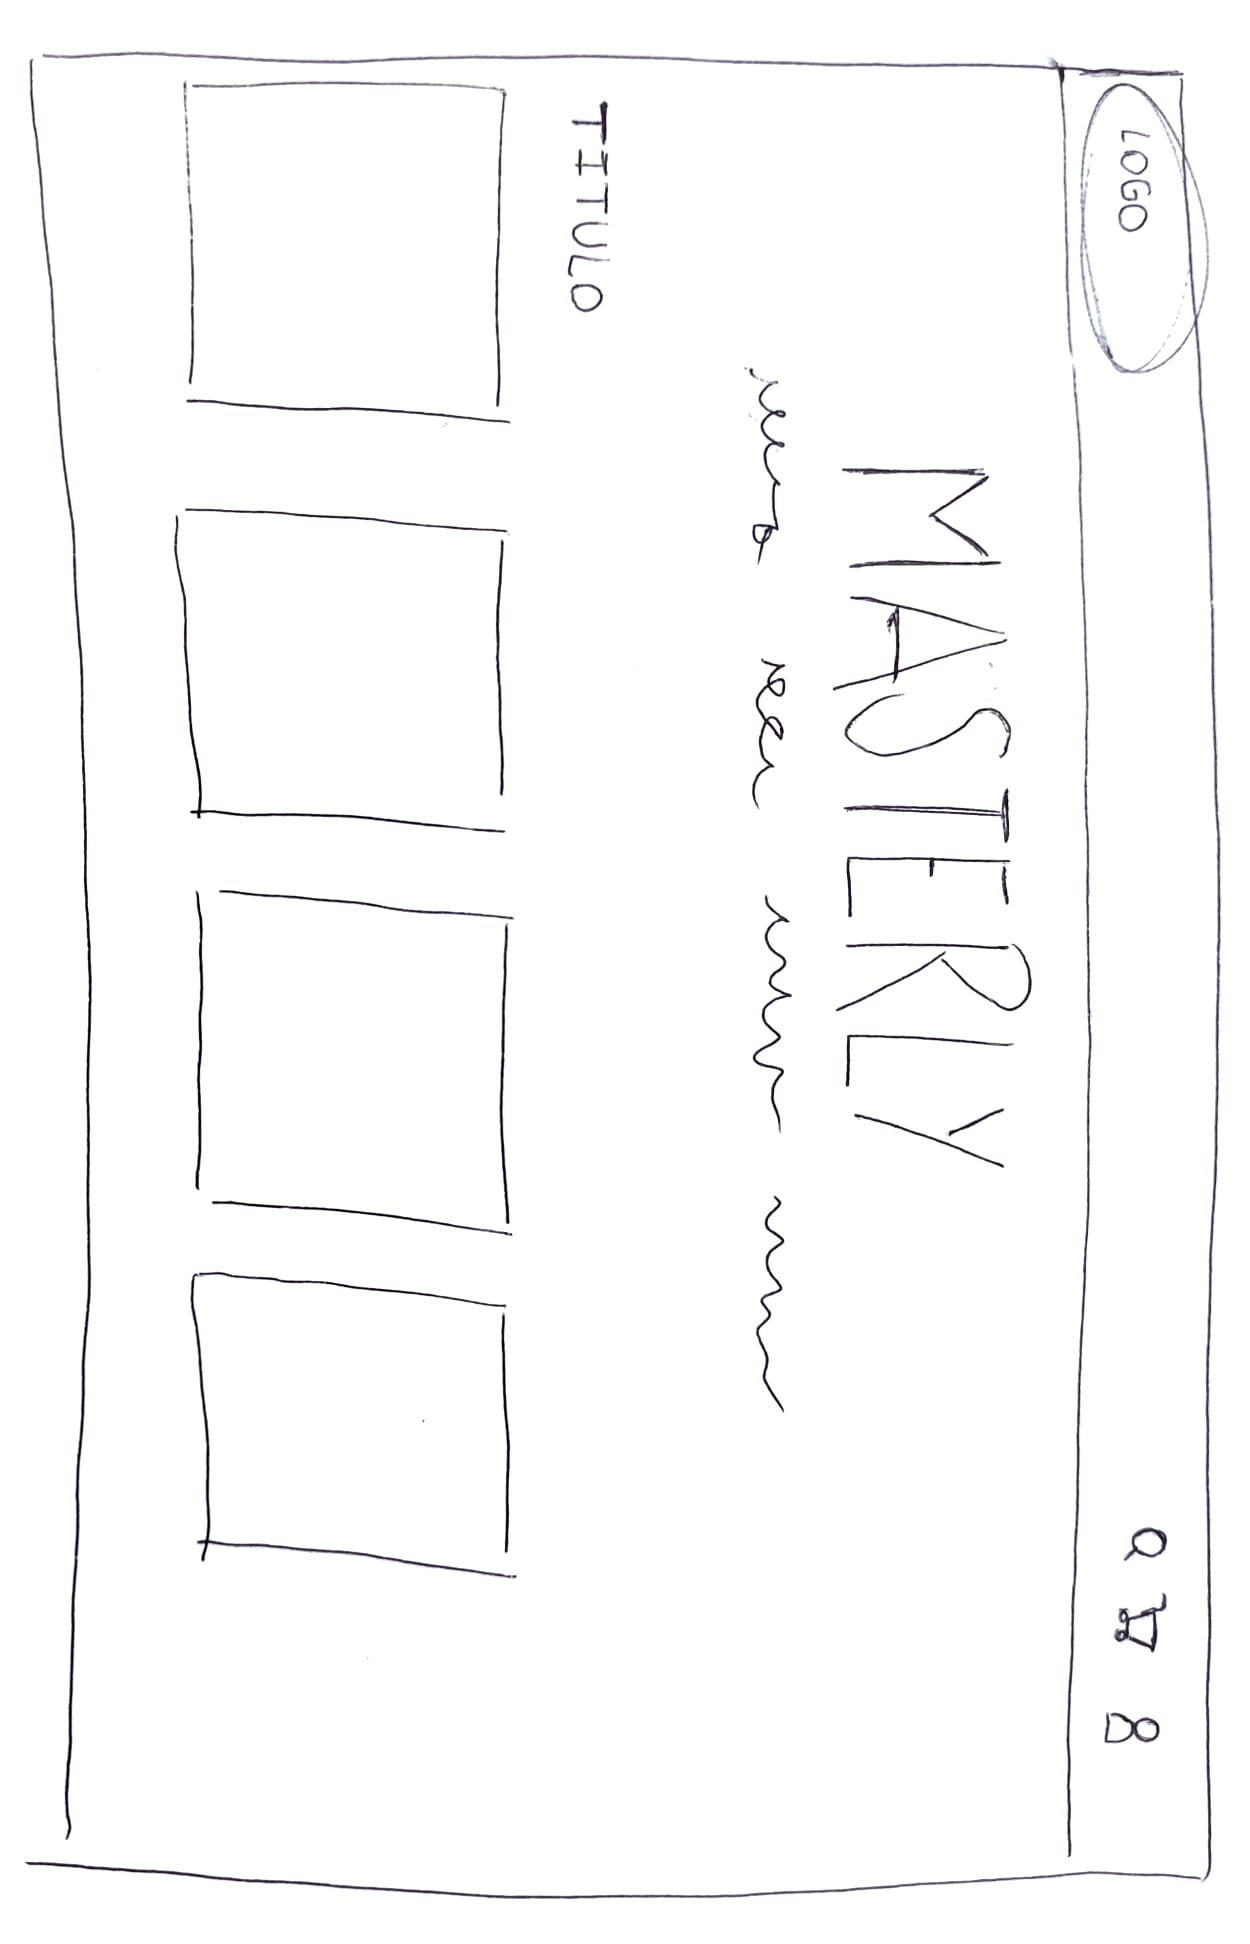 LOGO
MASTERLY
TITULO